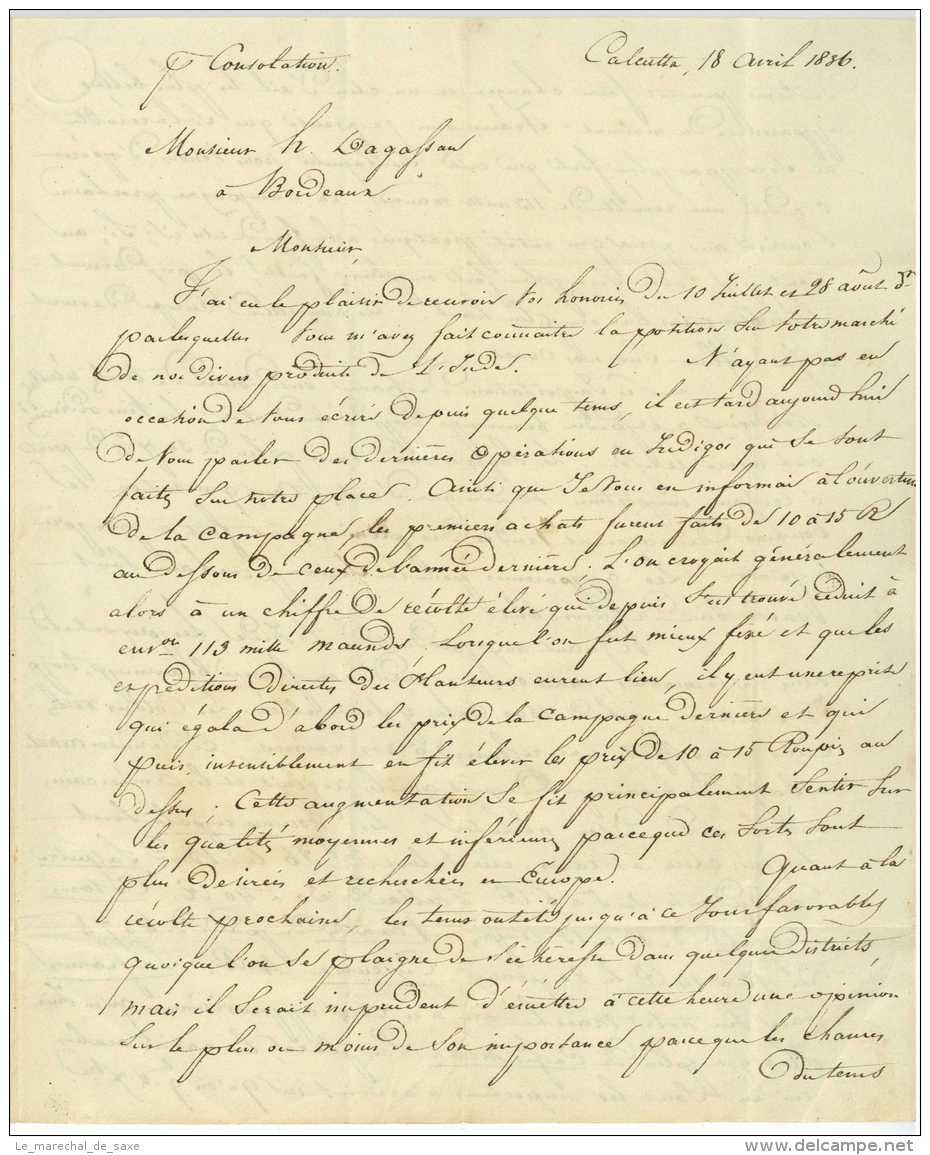 p Consolation.
Calcutta, 18 avril 1836.
Monsieur h. Dagassan
à Bordeaux
Monsieur
J'ai eu le plaisir de recevoir vos honorées du 10 Juillet et 28 août dr
par lesquelles vous m'avez fait connaitre la position sur votre marché
de nos divers produits de L'Inde. N'ayant pas eu
occasion de vous écrire depuis quelque tems, il est tard aujourd'hui
de vous parler des dernières opérations en Indigos que se sont
faites sur notre place. Ainsi que Je Vous en informai à l'ouverture
de la campagne, les premiers achats furent faits de 10 à 15 R
au dessous de ceux de l'année dernière. L'on croyait généralement
alors à un chiffre de récolte élevé qui depuis s'est trouvé réduit à
envon 113 mille maunds. Lorsque l'on fut mieux fixé et que les
expéditions directes des Planteurs eurent lieu, il y eut une reprise
qui égala d'abord les prix de la campagne dernière et qui
puis insensiblement en fit élever les prix de 10 à 15 Roupies au
dessus; Cette augmentation se fit principalement sentir sur
les qualités moyennes et inférieures parceque ces sortes sont
plus desirées et recherchées en Europe. Quant à la
récolte prochaine, les tems ont été jusqu'à ce Jour favorables
quoique l'on se plaigne de sécheresse dans quelques districts,
mais il serait imprudent d'émettre à cette heure une opinion
sur le plus ou moins de son importance parceque les chances
du tems
Le_marechal_de_saxe
delcampe.net